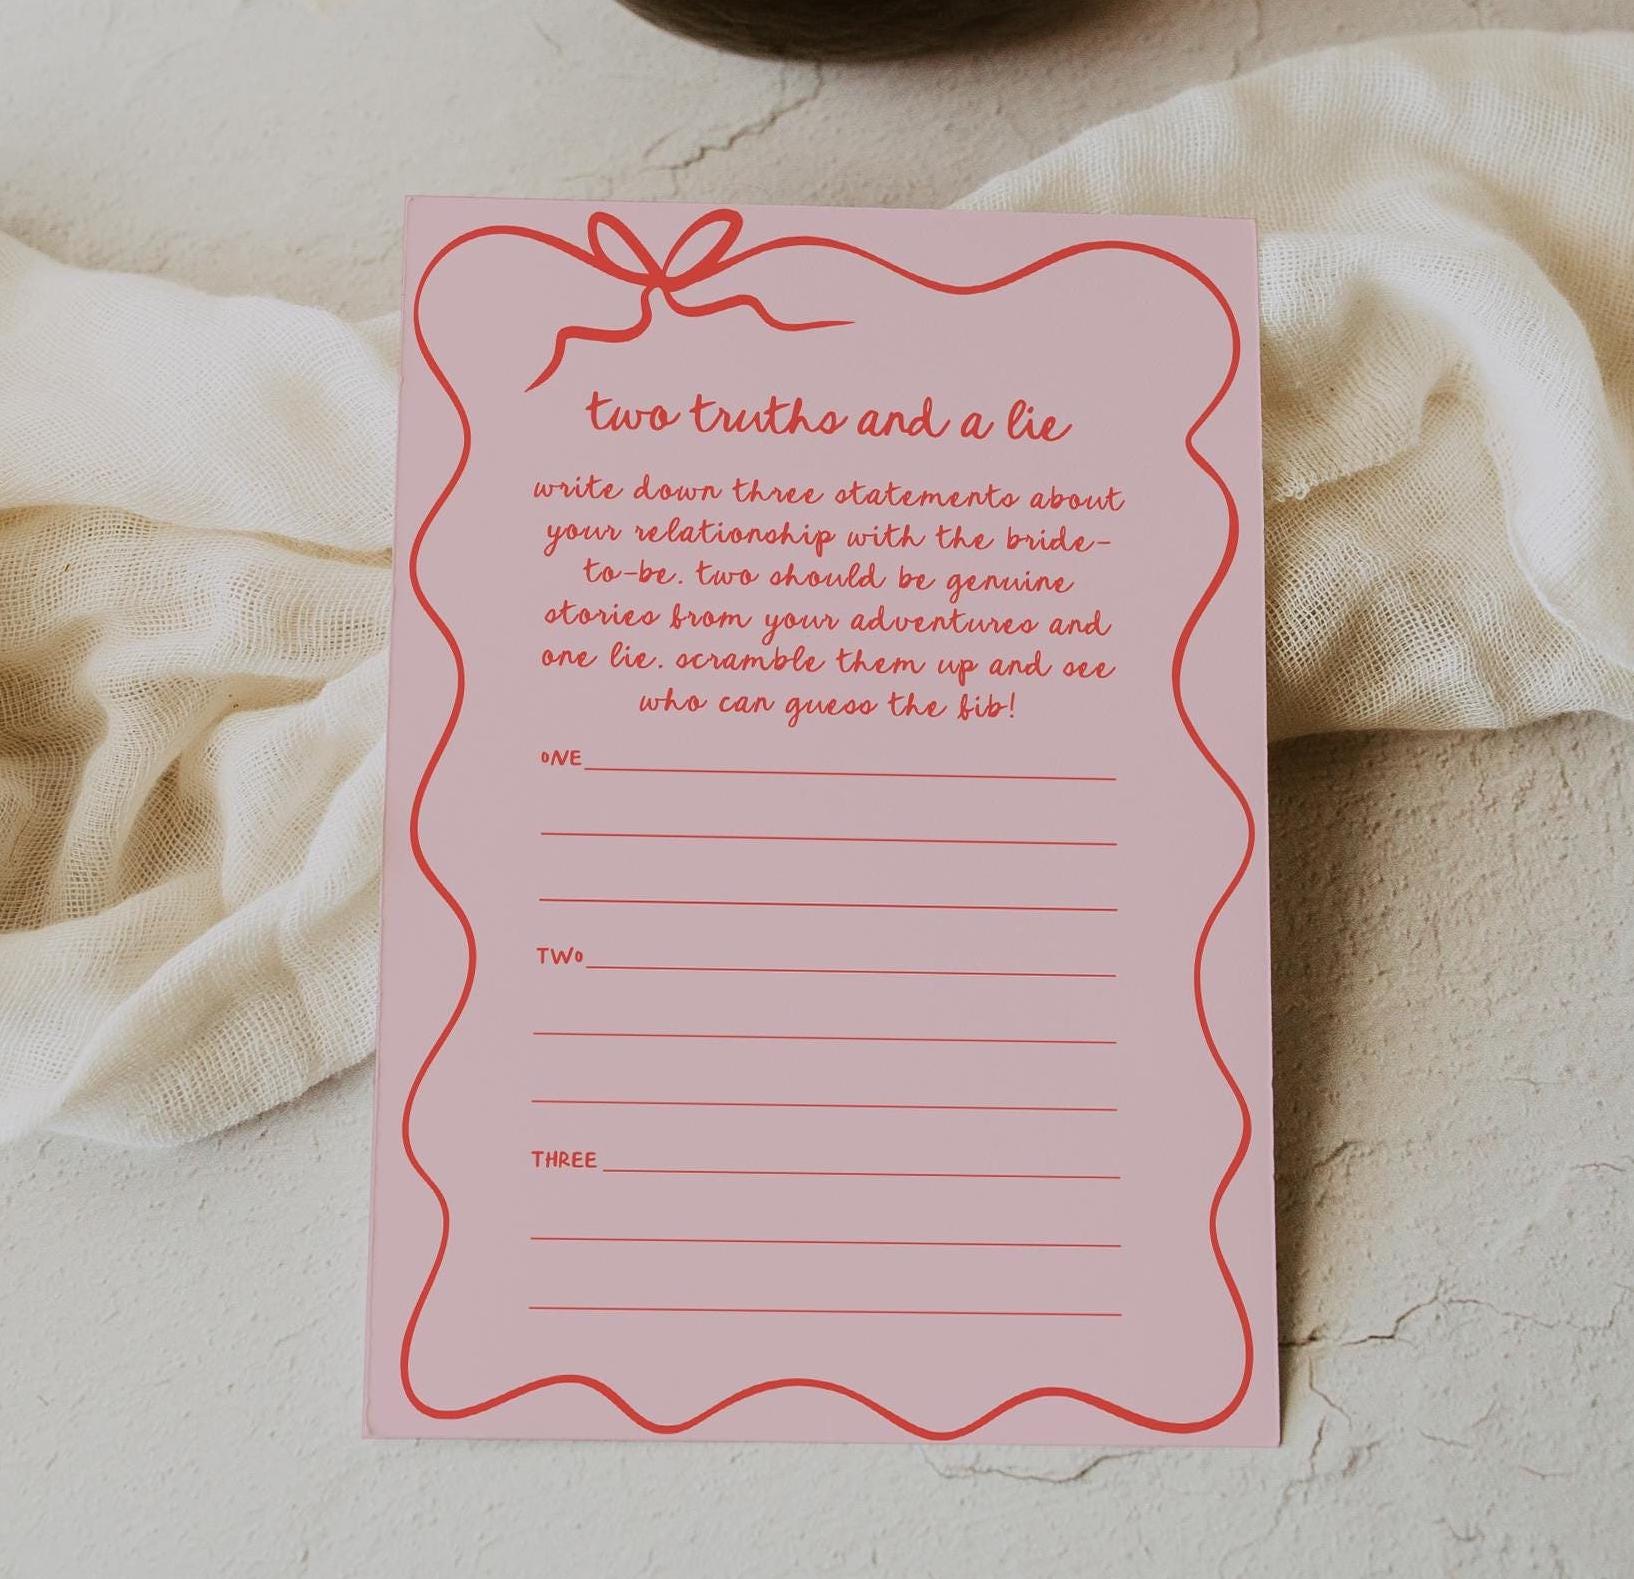 two truths and a lie
write down three statements about
your relationship with the bride-
to-be. two should be genuine
stories from your adventures and
one lie. scramble them up and see
who can guess the fib!
ONE
TWO
THREE